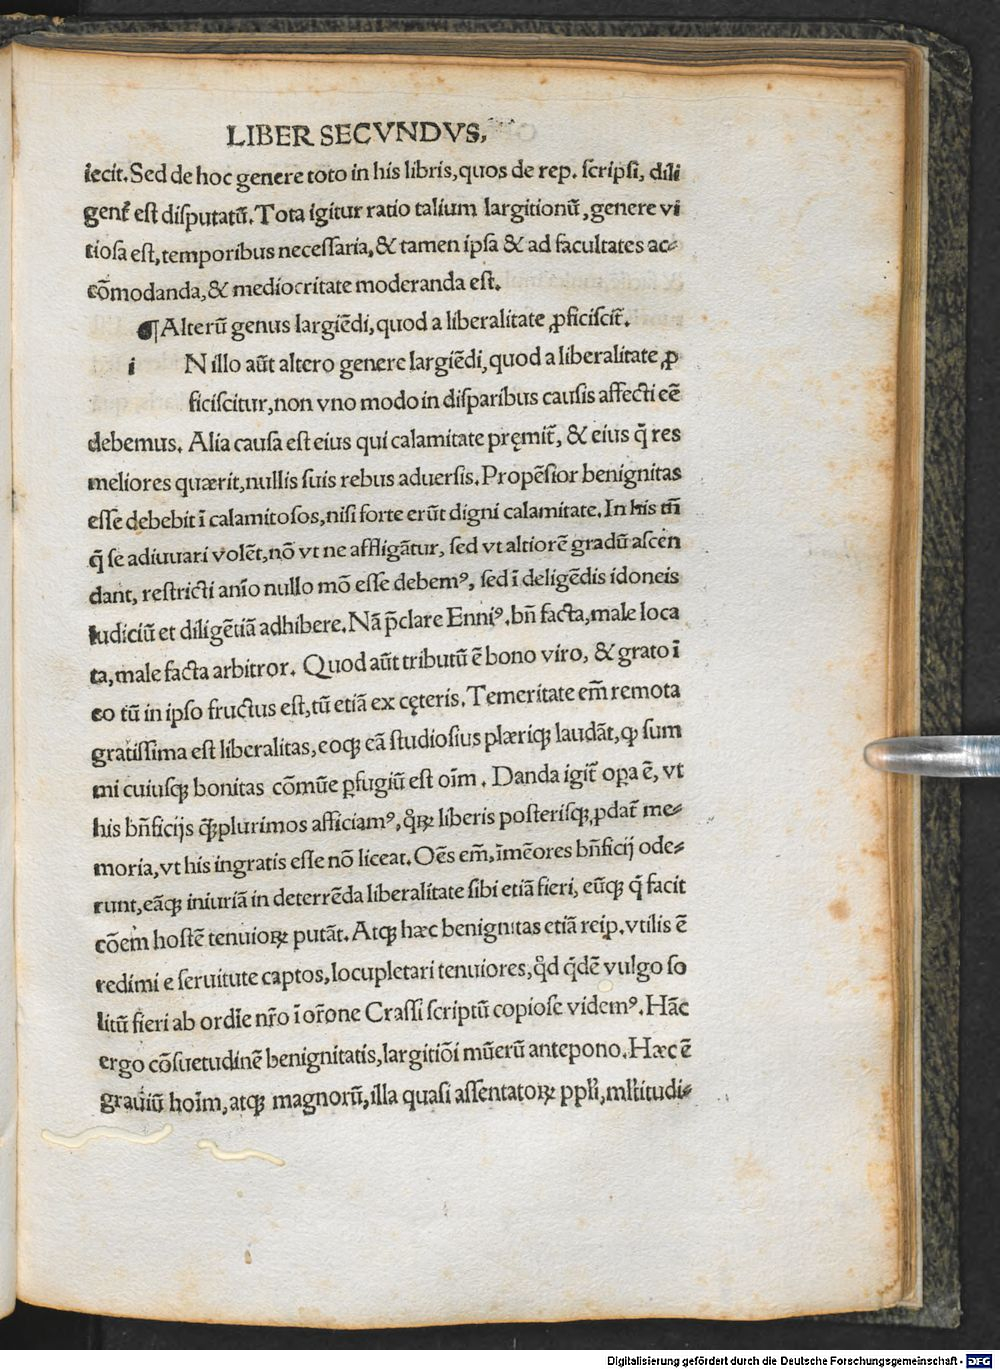 LIBER SECVNDVS,
iecit. Sed de hoc genere toto in his libris, quos de rep. scripsi, dili
genť est disputatū. Tota igitur ratio talium largitionū, genere vi
tiosa est, temporibus necessaria, & tamen ipsa & ad facultates ac⸗
cōmodanda, & mediocritate moderanda est.
¶ Alterū genus largiēdi, quod a liberalitate ꝓficiscit̃.
i N illo aūt altero genere largiēdi, quod a liberalitate ꝓ
ficiscitur, non vno modo in disparibus causis affecti eē
debemus. Alia causa est eius qui calamitate pręmit̃, & eius q̄ res
meliores quærit, nullis suis rebus aduersis. Propēsior benignitas
esse debebit ī calamitosos, nisi forte erūt digni calamitate. In his tñ
q̄ se adiuuari volēt, nō vt ne affligātur, sed vt altiorē gradū ascen
dant, restricti anīo nullo mō esse debemꝰ, sed ī deligēdis idoneis
Iudiciū et diligētiā adhibere. Nā p̄clare Enniꝰ. bn̄ facta, male loca
ta, male facta arbitror. Quod aūt tributū ē bono viro, & grato ī
eo tū in ipso fructus est, tū etiā ex cęteris. Temeritate em̄ remota
gratissima est liberalitas, eoqꝫ eā studiosius plæriqꝫ laudāt, ꝙ sum
mi cuiusqꝫ bonitas cōmūe ꝑfugiū est oīm. Danda igit̃ oꝑa ē, vt
his bn̄ficijs q̄ꝫplurimos afficiamꝰ, q̊ꝝ liberis posterisqꝫ, ꝓdat̃ me⸗
moria, vt his ingratis esse nō liceat. Oēs em̄, īmēores bn̄ficij ode⸗
runt, eāqꝫ iniuriā in deterrēda liberalitate sibi etiā fieri, eūqꝫ q̄ facit
cōem hostē tenuioꝝ putāt. Atqꝫ hæc benignitas etiā reiꝑ. vtilis ē
redimi e seruitute captos, locupletari tenuiores, q̊d q̄dē vulgo so
litū fieri ab ordīe nr̄o ī or̄one Crassi scriptū copiose videmꝰ. Hāc
ergo cōsuetudinē benignitatis, largitiōi mūerū antepono. Hæc ē
grauiū hoīm, atqꝫ magnorū, illa quasi assentatoꝝ ppl̄i, ml̄titudi⸗
Digitalisierung gefördert durch die Deutsche Forschungsgemeinschaft - DFG